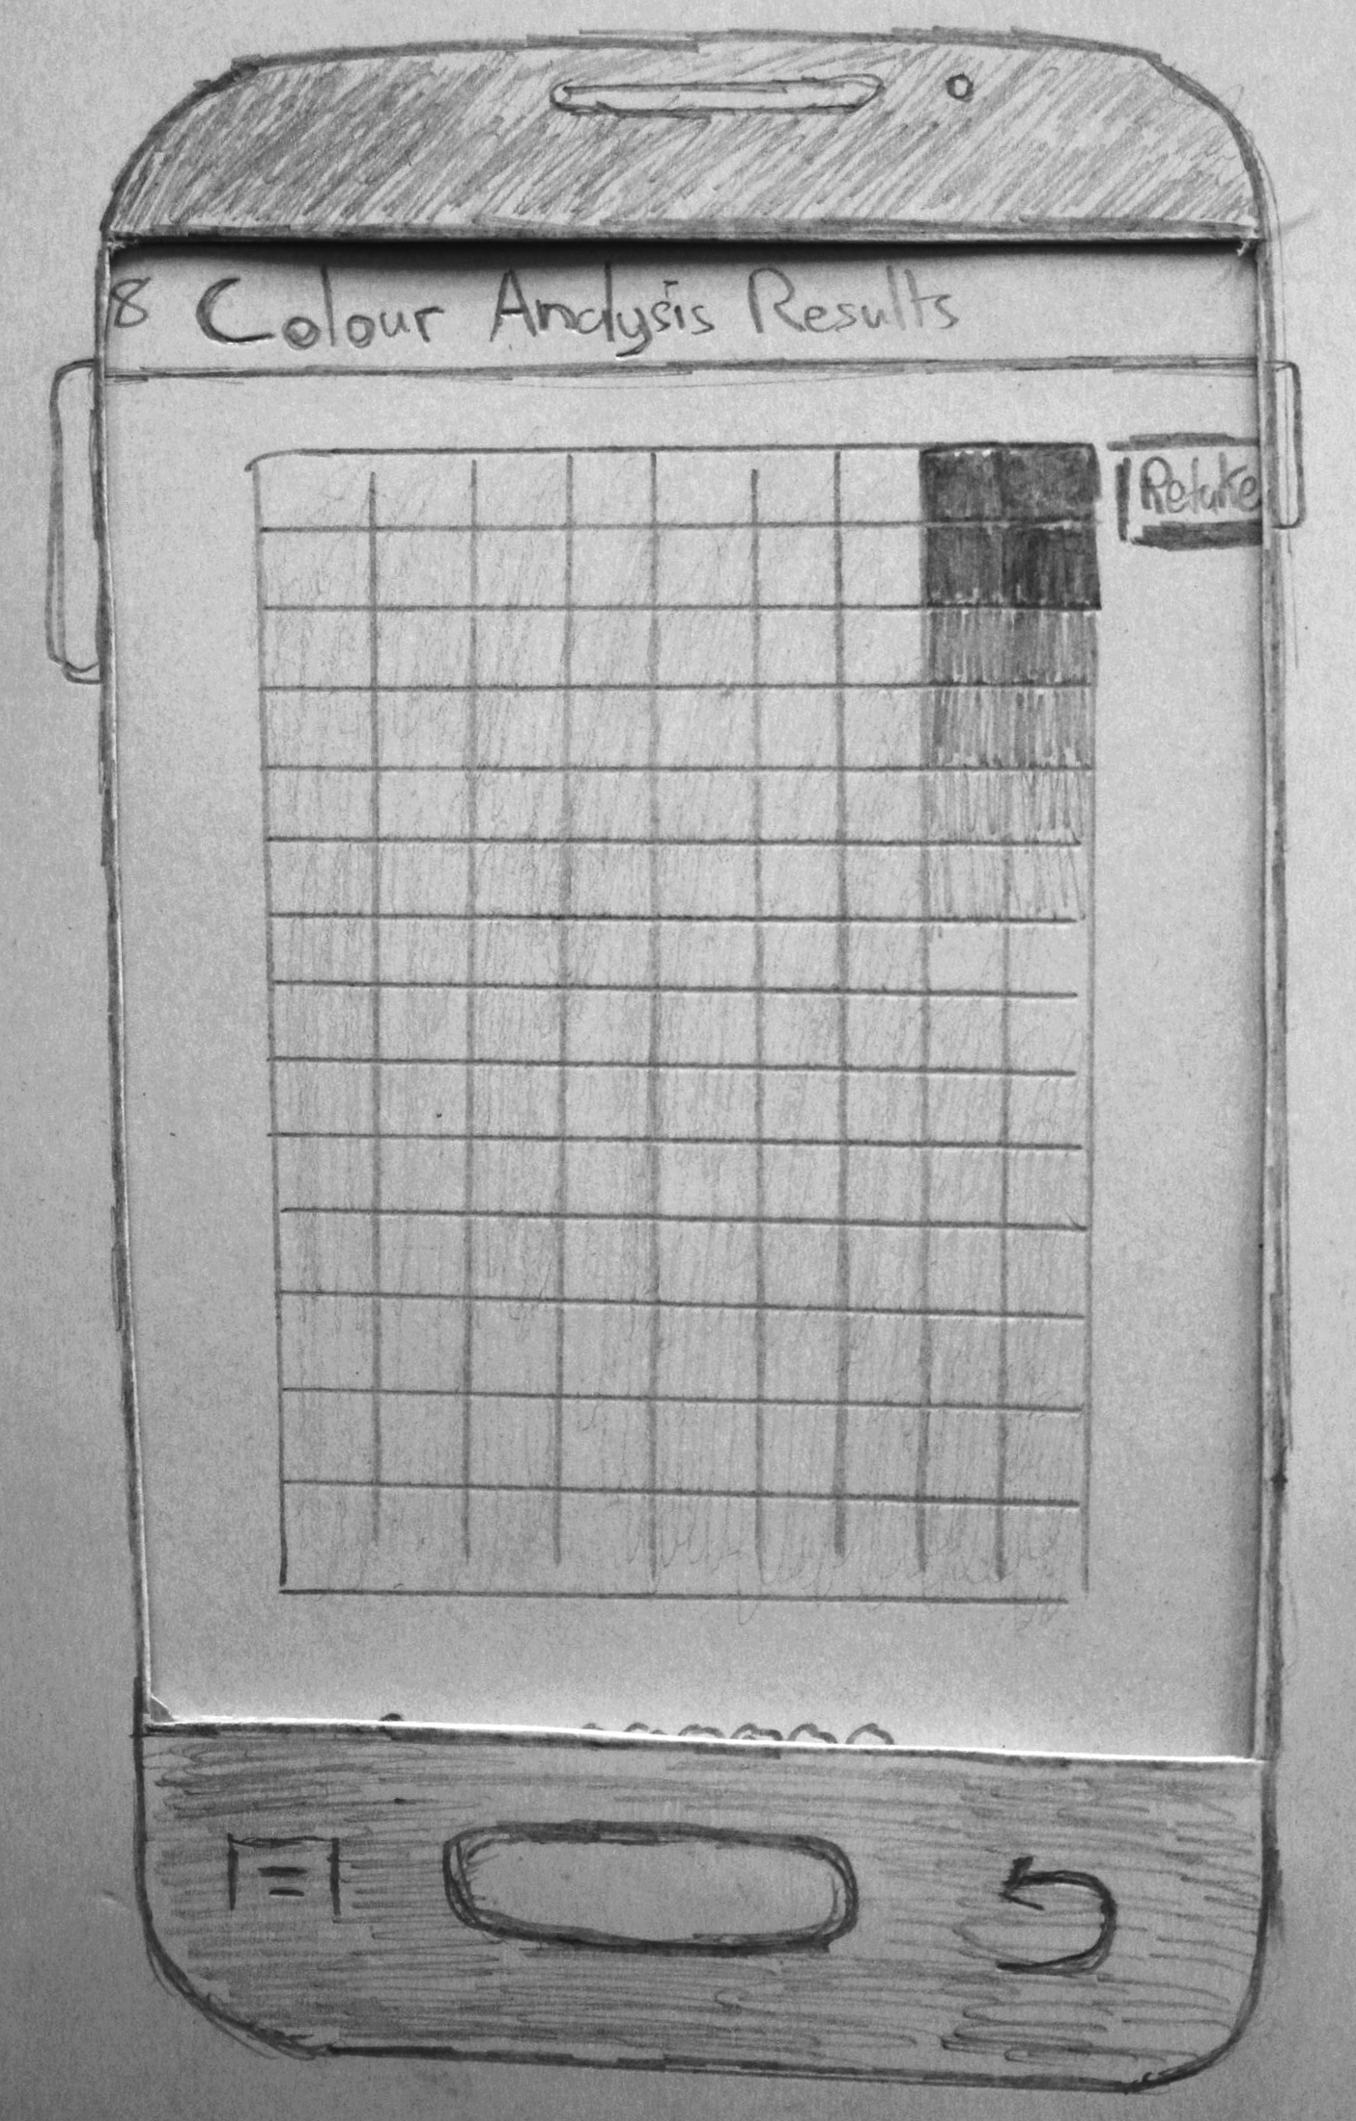 8 Colour Analysis Results
Retake